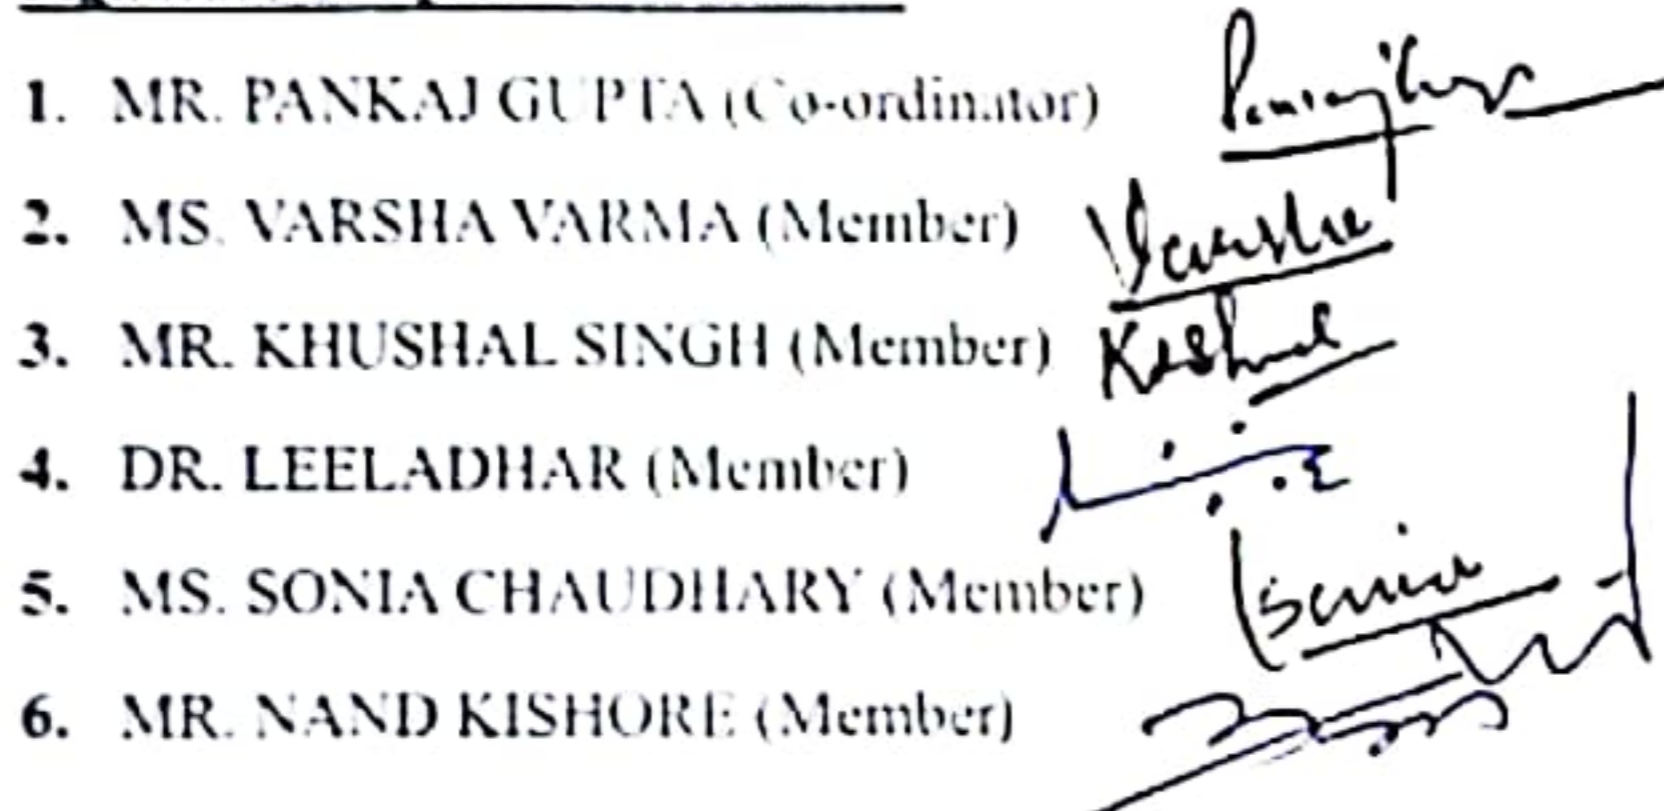 1. MR. PANKAJ GUPTA (Co-ordinator)
2. MS. VARSHA VARMA (Member) Varsha
3. MR. KHUSHAL SINGH (Member)
4. DR. LEELADHAR (Member)
5. MS. SONIA CHAUDHARY (Member) Sonia
6. MR. NAND KISHORE (Member)